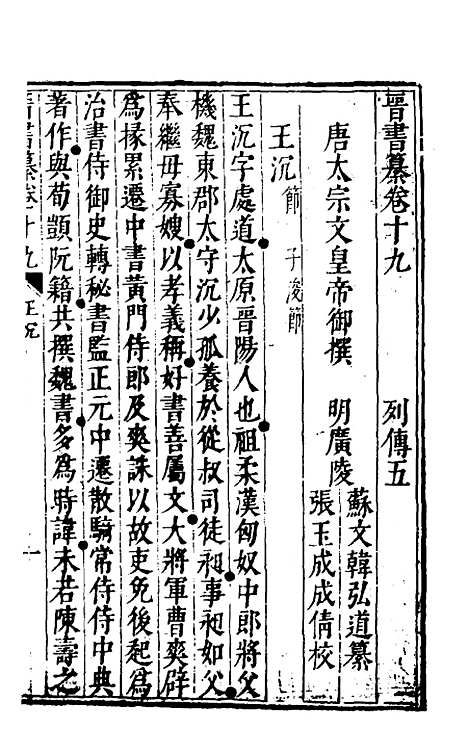 晉書纂卷十九　列傳五
唐太宗文皇帝御撰　明廣陵　蘇文韓弘道纂
張玉成成倩校
王沉節　子浚節
王沉字處道太原晉陽人也祖柔漢匈奴中郎將父
機魏東郡太守沉少孤養於從叔司徒昶事昶如父
奉繼母寡嫂以孝義稱好書善屬文大將軍曹爽辟
爲掾累遷中書黃門侍郎及爽誅以故吏免後起爲
治書侍御史轉秘書監正元中遷散騎常侍侍中典
著作與荀顗阮籍共撰魏書多爲時諱未若陳壽之
晉書纂卷十九　王沉　一